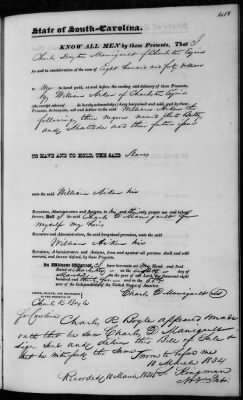 State of South-Carolina.
KNOW ALL MEN by these Presents, That I
Charles Drayton Manigault of Charleston Esquire
for and in consideration of the sum of Eight hundred and fifty dollars
to Me in hand paid, at and before the sealing and delivery of these Presents,
by William Aiken of Charleston Esquire
(the receipt whereof do hereby acknowledge) have bargained and sold, and by these
Presents, do bargain, sell and deliver to the said William Aiken the
following three negroes named
and Matilda and their future
TO HAVE AND TO HOLD, THE SAID Slaves
unto the said William Aiken his
Executors, Administrators and Assigns, to his and their only proper use and behoof
for ever. And I the said Charles D Manigault for
myself my heirs
Executors and Administrators, the said bargained premises, unto the said
William Aiken his
Executors, Administrators and Assigns, from and against all persons shall and will
warrant, and forever defend, by these Presents.
In Witness Whereof, I have hereunto set My Hand and Seal
Dated at Charleston on the
day of March in the year of our Lord one thousand eight
hundred and thirty four and in the
SIGNED, SEALED, AND DELIVERED
IN THE PRESENCE OF
Charles D Manigault
Charles R Boyle
So Carolina Charles R Boyle appeared made
oath that he saw Charles D Manigault
sign seal and deliver the Bill of Sale &
that he witnessed the same Sworn to before me
10 March 1834
Recorded 10 March 1834 S Kingman